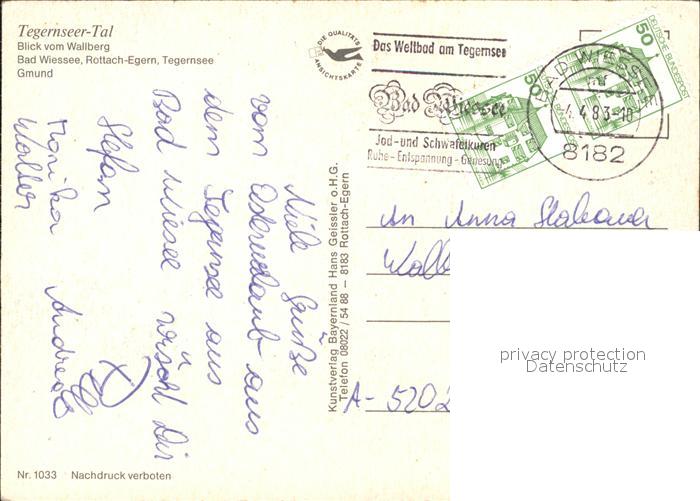 Tegernseer-Tal
Blick vom Wallberg
Bad Wiessee, Rottach-Egern, Tegernsee
Gmund
DIE QUALITÄTS
ANSICHTSKARTE
Das Weltbad am Tegernsee
Bad Wiessee
Jod- und Schwefelkuren
Ruhe - Entspannung - Genesung
50
DEUTSCHE BUNDESPOST
50
DEUTSCHE BUNDESPOST
BAD WIESSEE
4.4.83-10
8182
Viele Grüße
vom Osterurlaub aus
dem Tegernsee aus
Bad Wiessee wünscht Dir
Stefan
Monika Andreas
Walter
Kunstverlag Bayernland Hans Geissler o.H.G.
Telefon 08022 / 54 88 — 8183 Rottach-Egern
An Anna
A-5202
privacy protection
Datenschutz
Nr. 1033 Nachdruck verboten